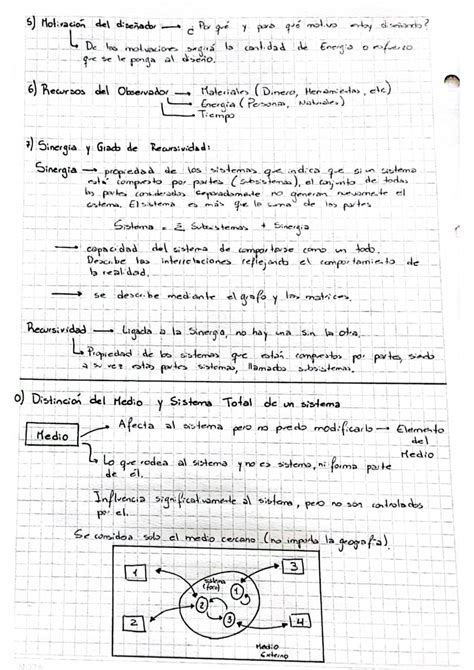 5) Motivación del diseñador → ¿Por qué y para qué motivo estoy diseñando?
↳ De las motivaciones seguirá la cantidad de Energía o esfuerzo
que se le ponga al diseño.
6) Recursos del Observador → Materiales (Dinero, Herramientas, etc)
→ Energía (Personas, Naturales)
→ Tiempo
7) Sinergia y Grado de Recursividad:
Sinergia → propiedad de los sistemas que indica que si un sistema
está compuesto por partes (subsistemas), el conjunto de todas
las partes consideradas separadamente no generan nuevamente el
sistema. El sistema es más que la suma de las partes
Sistema = Σ Subsistemas + Sinergia
→ capacidad del sistema de comportarse como un todo.
Describe las interrelaciones reflejando el comportamiento de
la realidad.
→ se describe mediante el grafo y las matrices.
Recursividad → Ligada a la Sinergia, no hay una sin la otra.
↳ Propiedad de los sistemas que están compuestos por partes, siendo
a su vez estas partes sistemas, llamados subsistemas.
0) Distinción del Medio y Sistema Total de un sistema
Medio → Afecta al sistema pero no puedo modificarlo → Elemento
del
Medio
↳ Lo que rodea al sistema y no es sistema, ni forma parte
de él.
Influencia significativamente al sistema, pero no son controlados
por el.
Se considera solo el medio cercano (no importa la geografía).
1
3
sistema
(foco)
1
2
3
2
4
Medio
Externo